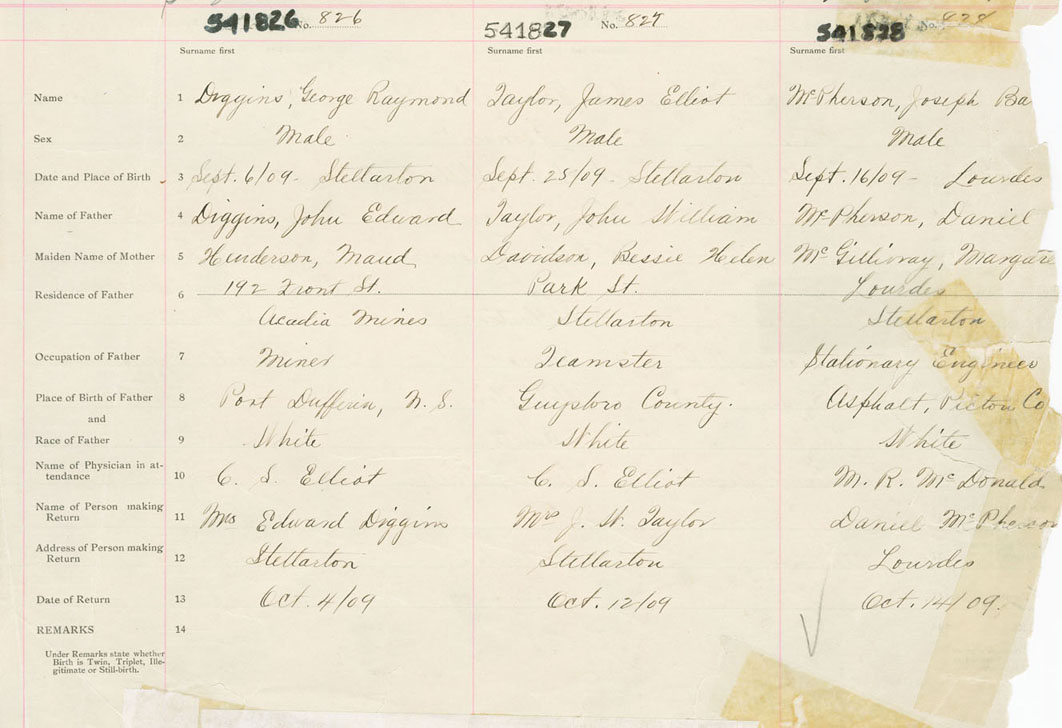 541826 No. 826 541827 No. 827 541828 No. 828
Surname first Surname first Surname first
Name 1 Diggins, George Raymond Taylor, James Elliot McPherson, Joseph Ba
Sex 2 Male Male Male
Date and Place of Birth 3 Sept. 6/09 - Stellarton Sept. 25/09 - Stellarton Sept. 16/09 - Lourdes
Name of Father 4 Diggins, John Edward Taylor, John William McPherson, Daniel
Maiden Name of Mother 5 Henderson, Maud Davidson, Bessie Helen McGillivray, Margare
Residence of Father 6 192 Front St. Park St. Lourdes
Acadia Mines Stellarton Stellarton
Occupation of Father 7 Miner Teamster Stationary Engineer
Place of Birth of Father 8 Port Dufferin, N.S. Guysboro County. Asphalt, Pictou Co
and
Race of Father 9 White White White
Name of Physician in at-
tendance 10 C. S. Elliot C. S. Elliot M. R. McDonald
Name of Person making
Return 11 Mrs Edward Diggins Mrs J. W. Taylor Daniel McPherson
Address of Person making
Return 12 Stellarton Stellarton Lourdes
Date of Return 13 Oct. 4/09 Oct. 12/09 Oct. 14/09.
REMARKS 14
Under Remarks state whether
Birth is Twin, Triplet, Ille-
gitimate or Still-birth.